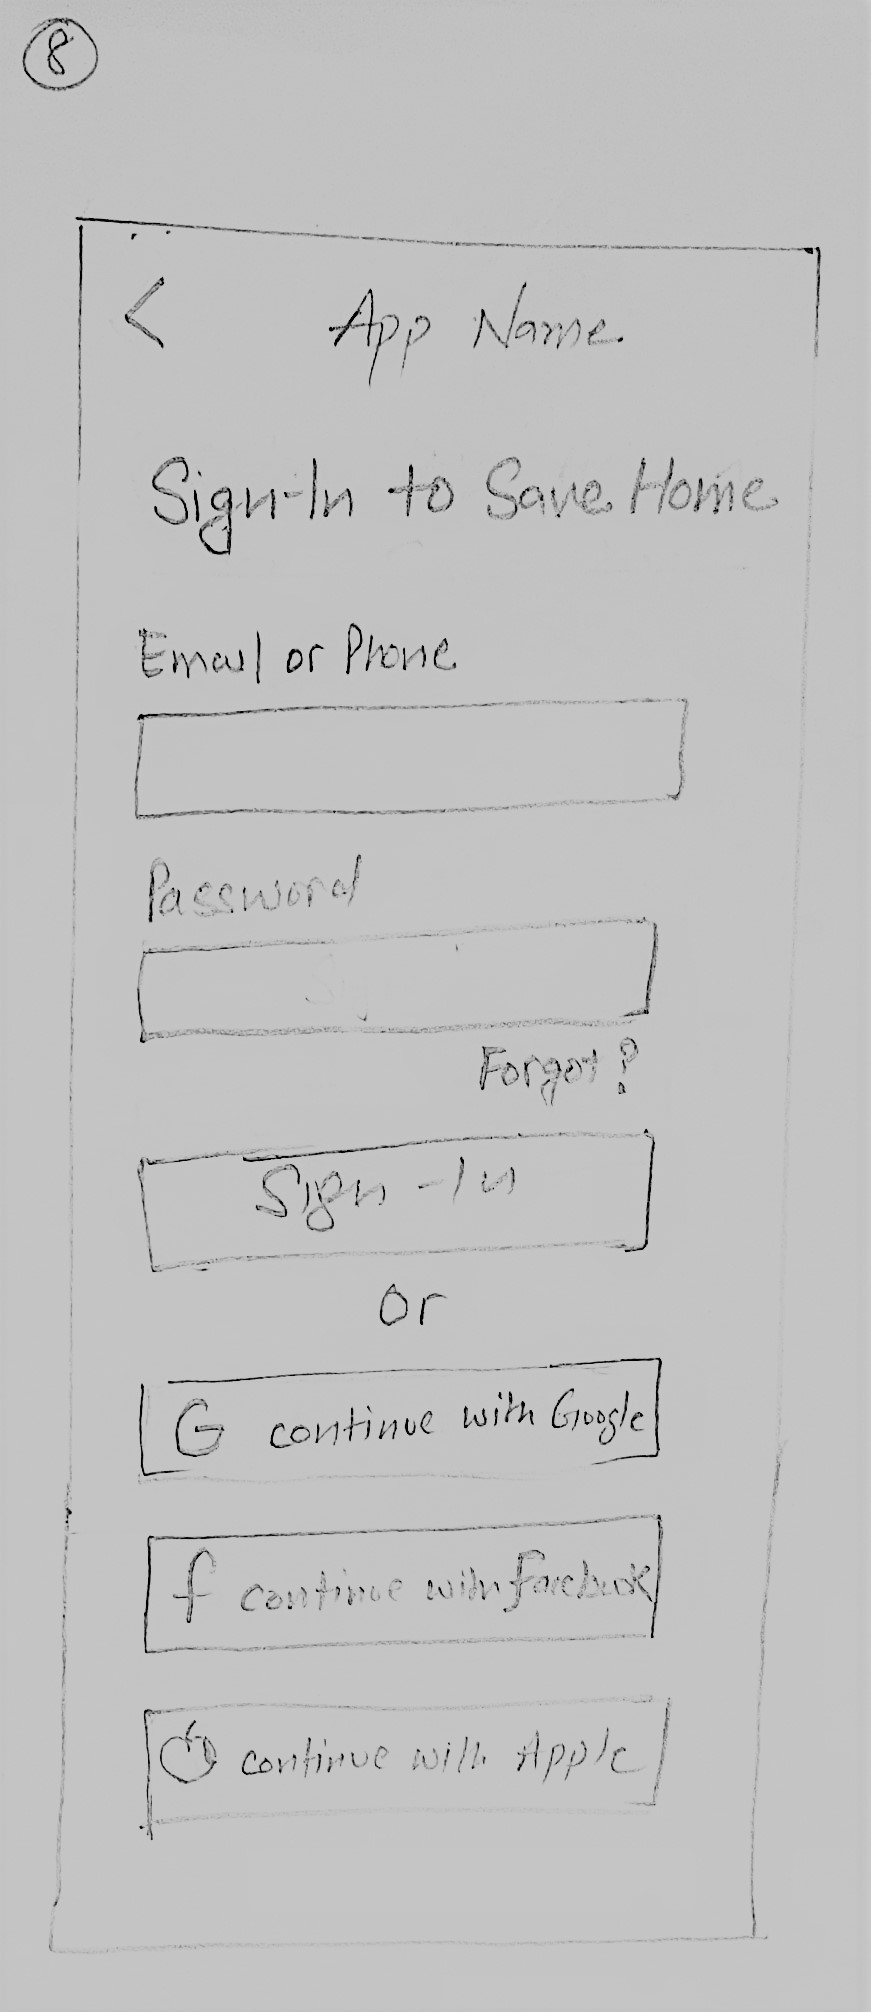 8
< App Name
Sign-In to Save Home
Email or Phone
Password
Forgot?
Sign-In
or
G continue with Google
f continue with Facebook
continue with Apple